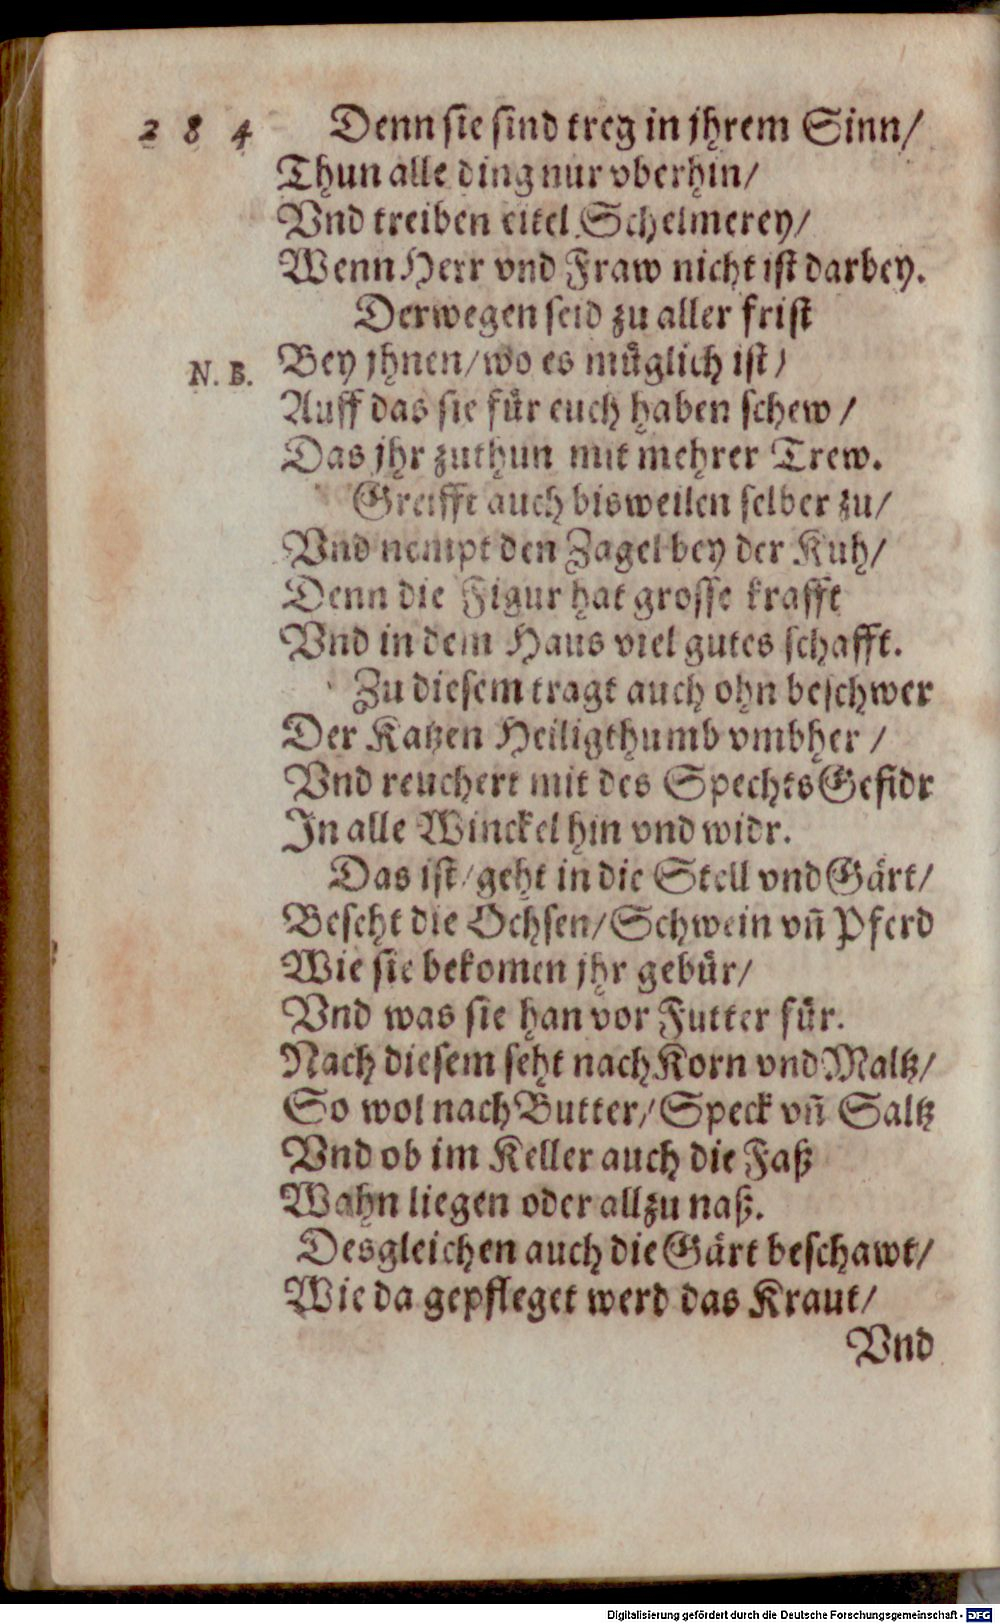 284 Denn sie sind treg in jhrem Sinn/
Thun alle ding nur vberhin/
Vnd treiben eitel Schelmerey/
Wenn Herr vnd Fraw nicht ist darbey.
Derwegen seid zu aller frist
N. B. Bey jhnen/ wo es müglich ist/
Auff das sie für euch haben schew/
Das jhr zuthun mit mehrer Trew.
Greifft auch bisweilen selber zu/
Vnd nempt den Zagel bey der Kuh/
Denn die Figur hat grosse krafft
Vnd in dem Haus viel gutes schafft.
Zu diesem tragt auch ohn beschwer
Der Katzen Heiligthumb vmbher/
Vnd reuchert mit des Spechts Gefidr
In alle Winckel hin vnd widr.
Das ist/ geht in die Stell vnd Gärt/
Beseht die Ochsen/ Schwein vñ Pferd
Wie sie bekomen jhr gebür/
Vnd was sie han vor Futter für.
Nach diesem seht nach Korn vnd Maltz/
So wol nach Butter/ Speck vñ Saltz
Vnd ob im Keller auch die Faß
Wahn liegen oder allzu naß.
Desgleichen auch die Gärt beschawt/
Wie da gepfleget werd das Kraut/
Vnd
Digitalisierung gefördert durch die Deutsche Forschungsgemeinschaft - DFG